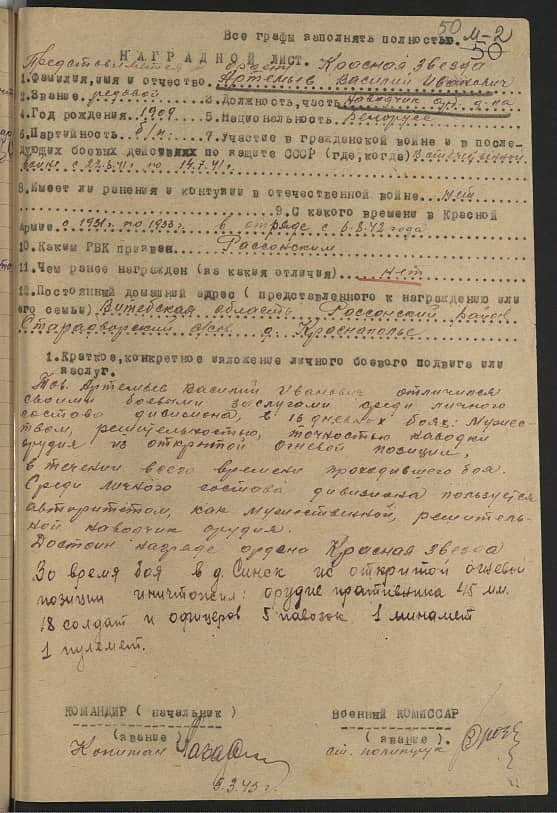 50 М-2
Все графы заполнять полностью.
50
НАГРАДНОЙ ЛИСТ.
Представляется ордену Красная звезда
1.Фамилия,имя и отчество Артемьев Василий Иванович
2.Звание рядовой 3.Должность,часть наводчик
4.Год рождения 1909 5.Национальность Белорусс
6.Партийность б/п. 7.Участие в гражданской войне и в после-
дующих боевых действиях по защите СССР (где,когда) В отечественной
войне с 22.6.41 по 14.7.41г.
8.Имеет ли ранения и контузии в отечественной войне нет
9.С какого времени в Красной
Армии с 1931г. по 1933г. в отряде с 6.8.42 года
10.Каким РВК призван Россонским
11.Чем ранее награжден (за какия отличия) нет
12.Постоянный домашний адрес (представленного к награждению или
его семьи) Витебская область Россонский район
д. Краснополье
1.Краткое,конкретное изложение личного боевого подвига или
заслуг.
Тов. Артемьев Василий Иванович отличился
своими боевыми заслугами среди личного
состава дивизиона, в 16 дневных боях: Мужест-
вом, решительностью, точностью наводки
орудия из открытой огневой позиции,
в течении всего времени проходившего боя.
Среди личного состава дивизиона пользуется
авторитетом, как мужественной, решитель-
ной наводчик орудия.
Достоин награде ордена Красная звезда
За время боя в д. Синск из открытой огневой
позиции уничтожил: орудие пративника 45 мм.
18 солдат и офицеров 5 павозок 1 минамет
1 пулемет.
КОМАНДИР (начальник) Военный КОМИССАР
(звание) (звание)
Капитан ст. политрук
5.3.43г.